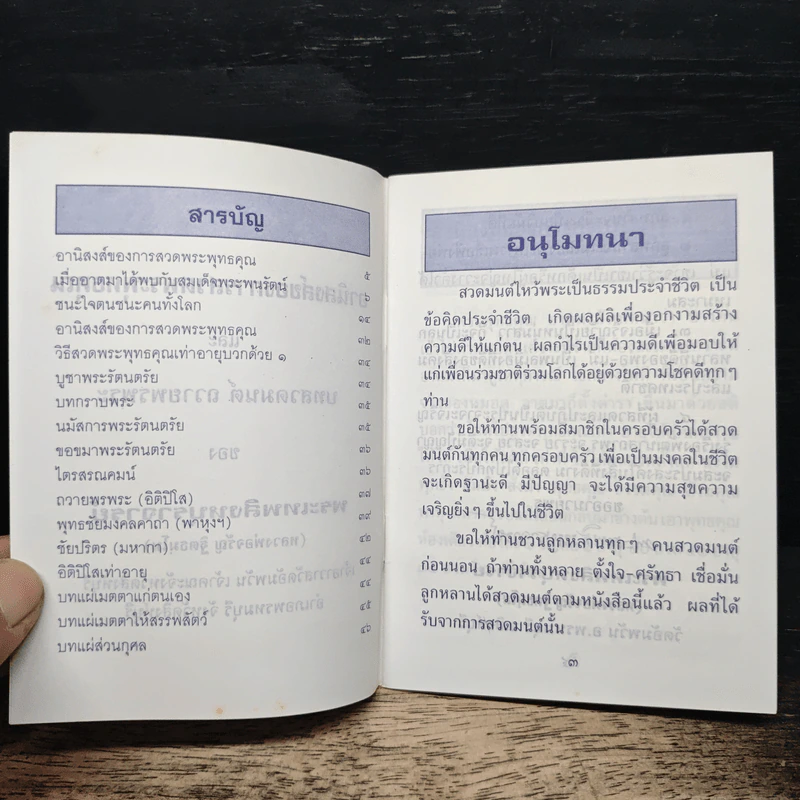 สารบัญ
อานิสงส์ของการสวดพระพุทธคุณ ๕
เมื่ออาตมาได้พบกับสมเด็จพระพนรัตน์ ๖
ชนะใจตนชนะคนทั้งโลก ๑๔
อานิสงส์ของการสวดพระพุทธคุณ ๓๒
วิธีสวดพระพุทธคุณเท่าอายุบวกด้วย ๑ ๓๔
บูชาพระรัตนตรัย ๓๔
บทกราบพระ ๓๕
นมัสการพระรัตนตรัย ๓๕
ขอขมาพระรัตนตรัย ๓๖
ไตรสรณคมน์ ๓๖
ถวายพรพระ (อิติปิโส) ๓๘
พุทธชัยมงคลคาถา (พาหุงฯ) ๓๙
ชัยปริตร (มหากา) ๔๒
อิติปิโสเท่าอายุ ๔๔
บทแผ่เมตตาแก่ตนเอง ๔๔
บทแผ่เมตตาให้สรรพสัตว์ ๔๕
บทแผ่ส่วนกุศล ๔๖
อนุโมทนา
สวดมนต์ไหว้พระเป็นธรรมประจำชีวิต เป็น
ข้อคิดประจำชีวิต เกิดผลผลิเพื่องอกงามสร้าง
ความดีให้แก่ตน ผลกำไรเป็นความดีเพื่อมอบให้
แก่เพื่อนร่วมชาติร่วมโลกได้อยู่ด้วยความโชคดีทุก ๆ
ท่าน
ขอให้ท่านพร้อมสมาชิกในครอบครัวได้สวด
มนต์กันทุกคน ทุกครอบครัว เพื่อเป็นมงคลในชีวิต
จะเกิดฐานะดี มีปัญญา จะได้มีความสุขความ
เจริญยิ่ง ๆ ขึ้นไปในชีวิต
ขอให้ท่านชวนลูกหลานทุก ๆ คนสวดมนต์
ก่อนนอน ถ้าท่านทั้งหลาย ตั้งใจ-ศรัทธา เชื่อมั่น
ลูกหลานได้สวดมนต์ตามหนังสือนี้แล้ว ผลที่ได้
รับจากการสวดมนต์นั้น
๓